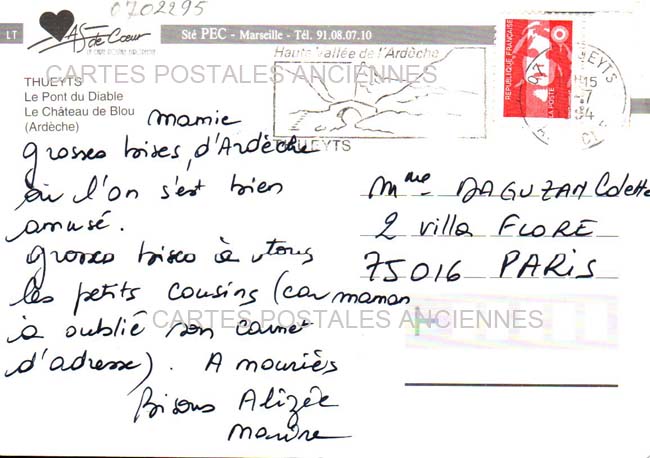 0702295
LT
As de Cœur
Sté PEC - Marseille - Tél. 91.08.07.10
THUEYTS
Le Pont du Diable
Le Château de Blou
(Ardèche)
Haute Vallée de l'Ardèche
THUEYTS
THUEYTS
15
-7
94
REPUBLIQUE FRANÇAISE
LA POSTE
CARTES POSTALES ANCIENNES
mamie
grosses bises d'Ardèche
où l'on s'est bien
amusé.
grosses bises à tous
les petits cousins (car maman
à oublié son carnet
d'adresse). A mouriès
Bisous Alizée
Mme DAGUZAN Colette
2 villa FLORE
75016 PARIS
CARTES POSTALES ANCIENNES